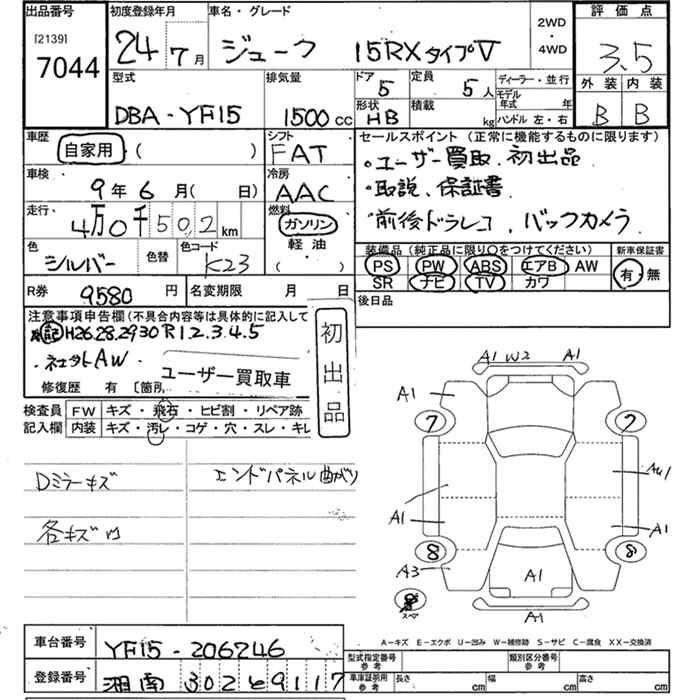 出品番号 初度登録年月 車名・グレード 2WD・4WD 評価点
[2139] 7044 24年7月 ジューク 15RX タイプV 3.5
型式 排気量 ドア 5 定員 5人 ディーラー・並行 外装 内装
モデル年式 年
DBA-YF15 1500cc 形状 HB 積載 kg ハンドル 左・右 B B
車歴 シフト セールスポイント (正常に機能するものに限ります)
自家用 ( ) FAT ・ユーザー買取、初出品
車検 9年6月( 日) 冷房 AAC ・取説、保証書
走行 4万0千502km 燃料 ガソリン 前後ドラレコ、バックカメラ
軽油 ( )
色 シルバー 色替 色コード K23 装備品 (純正品に限り○をつけてください) 新車保証書
PS PW ABS エアB AW 有・無
SR ナビ TV カワ
R券 9580円 名変期限 月 日 後日品
注意事項申告欄(不具合内容等は具体的に記入して
記H26.28.29 30 R1.2.3.4.5
・社外AW. 初出品
修復歴 有 [箇所 ユーザー買取車
検査員 FW キズ・飛石・ヒビ割・リペア跡
記入欄 内装 キズ・汚レ・コゲ・穴・スレ・キレ
A1 W2 A1
A1
7 7
Dミラーキズ エンドパネル曲がり
A1
各キズ凹 A1
8 8
A3 A1
スペア
A1
A-キズ E-エクボ U-凹み W-補修跡 S-サビ C-腐食 XX-交換済
車台番号 YF15-206246 型式指定番号 参考 類別区分番号 参考
登録番号 湘南 302 9117 車庫証明用 参考 長さ cm 幅 cm 高さ cm